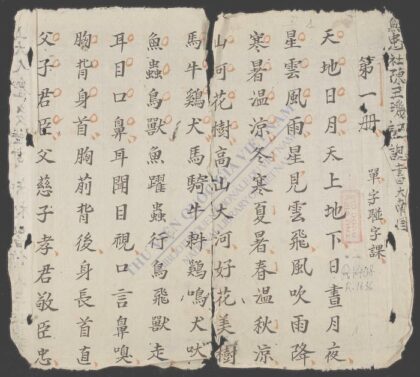 第一冊
單字聯字課
天地日月天上地下日晝月夜
星雲風雨星見雲飛風吹雨降
寒暑溫涼冬寒夏暑春溫秋涼
山河花樹高山大河好花美樹
馬牛鷄犬馬騎牛耕鷄鳴犬吠
魚蟲鳥獸魚躍蟲行鳥飛獸走
耳目口鼻耳聞目視口言鼻嗅
胸背身首胸前背後身長首直
父子君臣父慈子孝君敬臣忠
R.1636